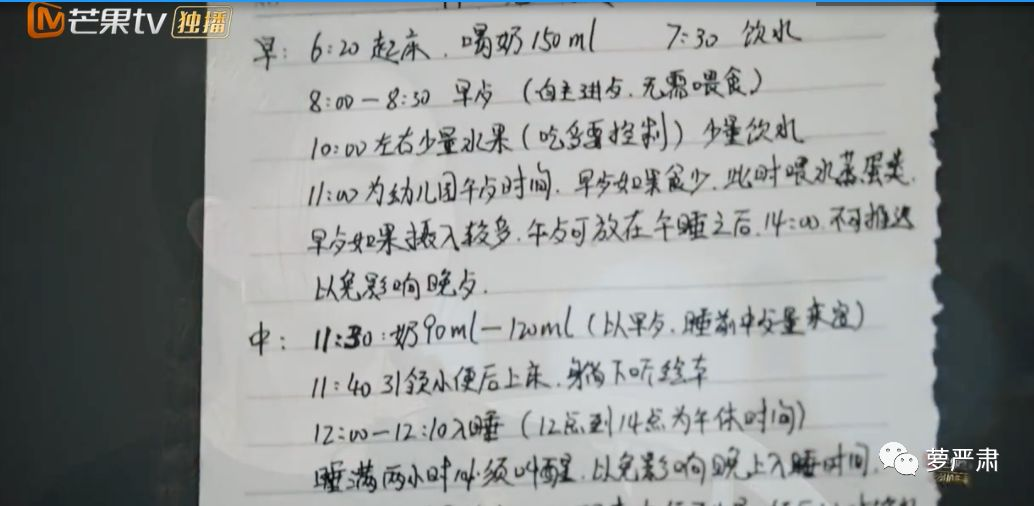 芒果tv 独播
早: 6:20 起床. 喝奶150ml 7:30 饮水
8:00—8:30 早歺 (自主进歺. 无需喂食)
10:00左右少量水果 (吃多要控制) 少量饮水
11:00为幼儿园午歺时间. 早歺如果食少. 此时喂水蒸蛋类.
早歺如果摄入较多. 午歺可放在午睡之后. 14:00. 不可推迟
以免影响晚歺.
中: 11:30:奶90ml—120ml (以早歺. 睡前中歺量来定)
11:40 引领小便后上床. 躺下听绘本
12:00—12:10入睡 (12点到14点为午休时间)
睡满两小时必须叫醒. 以免影响晚上入睡时间.
萝严肃